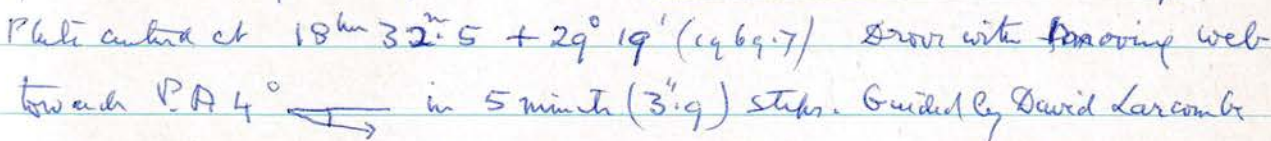 Plate centred at 18hm 32m.5 + 29° 19' (1969.7) Drove with moving web
towards P.A 4° in 5 minute (3".9) steps. Guided by David Larcombe